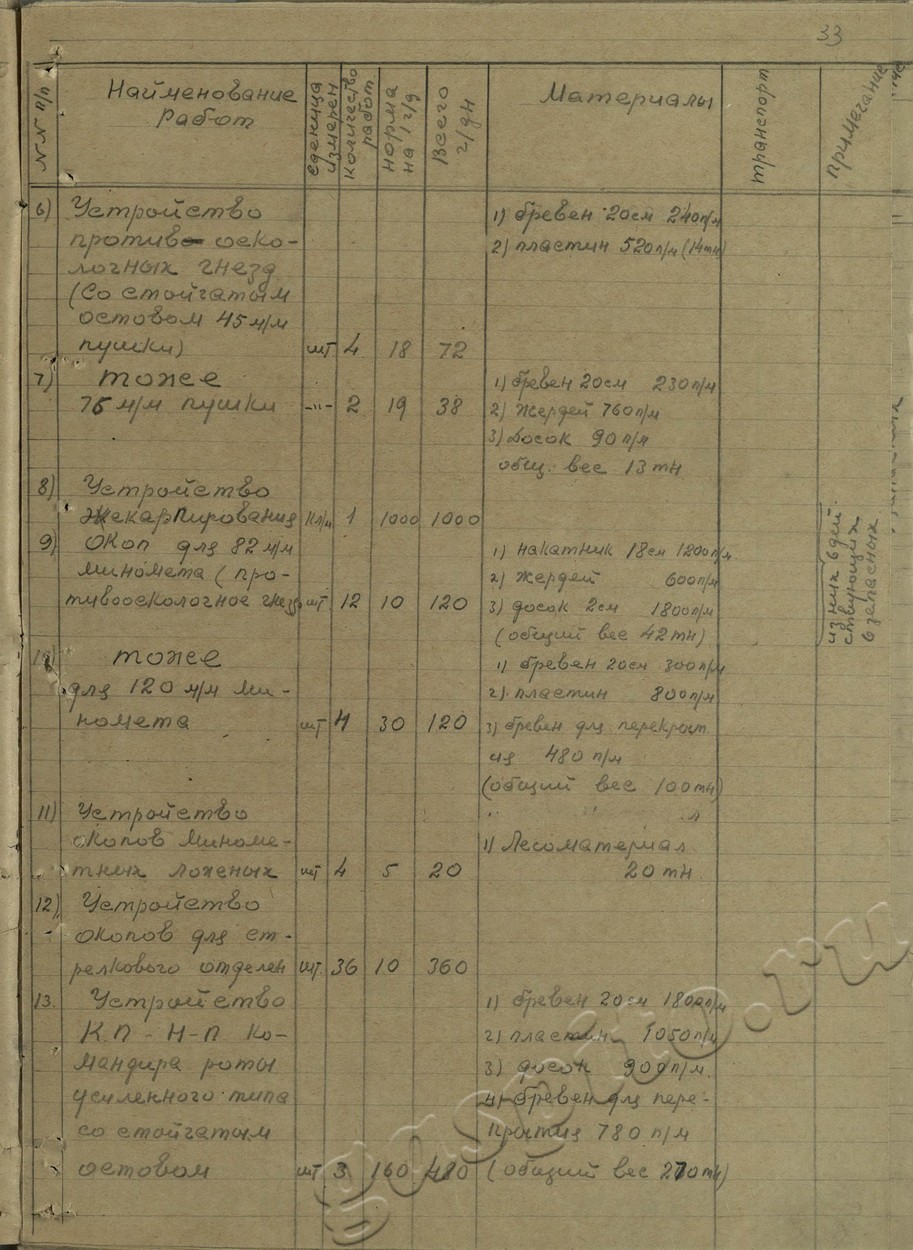 33
№№ п/п
Наименование работ
единица измерен
количество работ
норма на 1 ч/д
Всего ч/дн
Материалы
транспорт
примечание
6) Устройство 1) бревен 20см 240п/м
противо оско- 2) пластин 520п/м (14тн)
лочных гнезд
(Со стойчатым
остовом 45 м/м
пушки) шт 4 18 72
7) тоже 1) бревен 20см 230п/м
76 м/м пушки -"- 2 19 38 2) жердей 760п/м
3) досок 90 п/м
общ. вес 13 тн
8) Устройство
эскарпирования кл/м 1 1000 1000
9) Окоп для 82 м/м 1) накатник 18см 1200п/м
миномета (про- 2) жердей 600п/м
тивоосколочное гнездо шт 12 10 120 3) досок 2см 1800п/м
(общий вес 42тн)
из них 6 дей
ствующих
6 запасных
10) тоже 1) бревен 20см 300п/м
для 120 м/м ми- 2) пластин 800п/м
номета шт 4 30 120 3) бревен для перекрыт
ия 480 п/м
(общий вес 100тн)
11) Устройство
окопов миноме- 1) Лесоматериал
тных ложных шт 4 5 20 20 тн
12) Устройство
окопов для ст-
релкового отделен шт. 36 10 360
13. Устройство 1) бревен 20см 1800п/м
К.П - Н-П ко- 2) пластин 1050п/м
мандира роты 3) досок 900п/м.
усиленного типа 4) бревен для пере-
со стойчатым крытия 780 п/м
остовом шт 3 160 480 (общий вес 270тн)
gaspito.ru